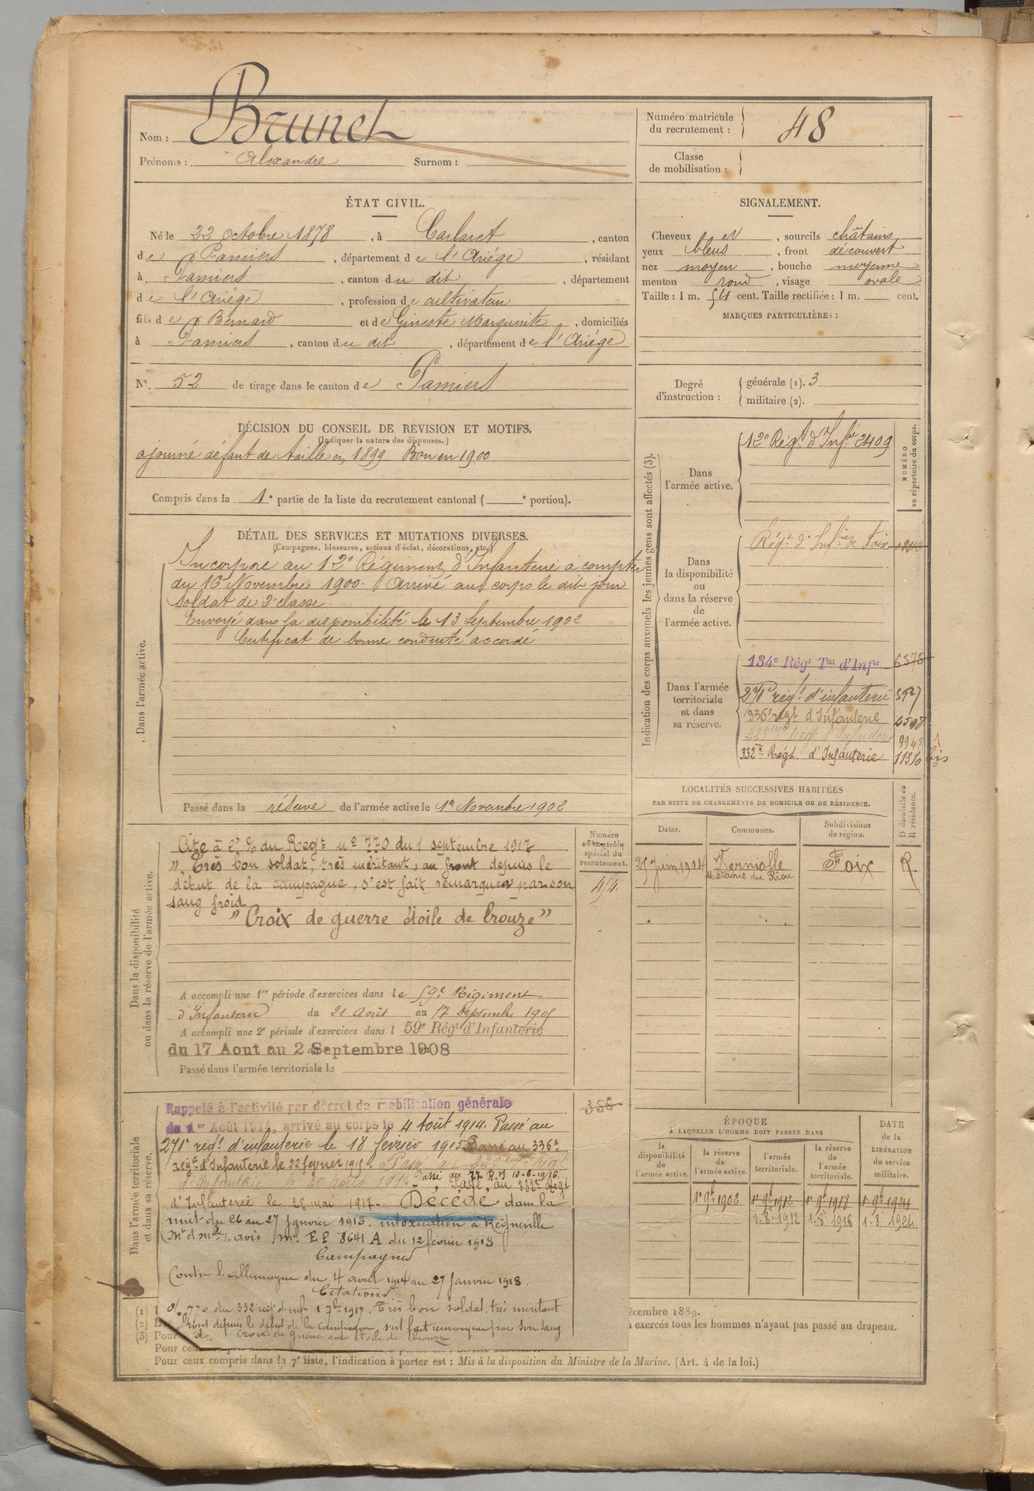 Nom : Brunet
Prénoms : Alexandre Surnom :
Numéro matricule du recrutement : 48
Classe de mobilisation :
ÉTAT CIVIL.
Né le 22 octobre 1878, à Carlaret, canton
de Pamiers, département de l'Ariège, résidant
à Pamiers, canton du dit, département
de l'Ariège, profession de cultivateur
fils de Bernard et de Gineste Marguerite, domiciliés
à Pamiers, canton du dit, département de l'Ariège
N° 52 de tirage dans le canton de Pamiers
SIGNALEMENT.
Cheveux et, sourcils châtains
yeux bleus, front découvert
nez moyen, bouche moyenne
menton rond, visage ovale
Taille : 1 m. 54 cent. Taille rectifiée : 1 m. cent.
MARQUES PARTICULIÈRES :
Degré d'instruction : générale (1). 3
militaire (2).
DÉCISION DU CONSEIL DE RÉVISION ET MOTIFS.
(Indiquer la nature des dispenses.)
ajourné défaut de taille en 1899 Bon en 1900
Compris dans la 1e partie de la liste du recrutement cantonal ( e portion).
DÉTAIL DES SERVICES ET MUTATIONS DIVERSES.
(Campagnes, blessures, actions d'éclat, décorations, etc.)
Dans l'armée active.
Incorporé au 12e Régiment d'Infanterie à compter
du 16 Novembre 1900. Arrivé au corps le dit jour
soldat de 2e classe.
Envoyé dans la disponibilité le 13 Septembre 1902
Certificat de bonne conduite accordé
Passé dans la réserve de l'armée active le 1e Novembre 1902
Indication des corps auxquels les jeunes gens sont affectés (3).
NUMÉRO au répertoire du corps.
Dans l'armée active.
12e Régt d'Infie 2409
Dans la disponibilité ou dans la réserve de l'armée active.
Régt d'Infie de Foix
Dans l'armée territoriale et dans sa réserve.
134e Régt Tal d'Infie 6878
271e régt d'infanterie
336e régt d'Infanterie
332e Régt d'Infanterie 11310 bis
LOCALITÉS SUCCESSIVES HABITÉES
PAR SUITE DE CHANGEMENTS DE DOMICILE OU DE RÉSIDENCE.
Dates. Communes. Subdivisions de région. D domicile ou R résidence.
Juin 1914 Verniolle Foix R.
Dans la disponibilité ou dans la réserve de l'armée active.
Numéro au contrôle spécial du recrutement.
Cité à l'o/o du Regt n° 770 du 1 septembre 1917
" Très bon soldat, très méritant, au front depuis le
début de la campagne, s'est fait remarquer par son
sang froid
" Croix de guerre étoile de bronze "
A accompli une 1re période d'exercices dans le 59e Régiment
d'Infanterie du 21 Août au 17 Septembre 1905
A accompli une 2e période d'exercices dans l 59e Régt d'Infanterie
du 17 Aout au 2 Septembre 1908
Passé dans l'armée territoriale le
Dans l'armée territoriale et dans sa réserve.
Rappelé à l'activité par décret de mobilisation générale
du 1er Août 1914, arrivé au corps le 4 août 1914. Passé au
271e régt d'infanterie le 18 février 1915 Passé au 336e
régt d'Infanterie le 22 février 1915.
Passé au 332e Régt
d'Infanterie le 28 mai 1917. Décédé dans la
nuit du 26 au 27 janvier 1918. intoxication à
avis EP 8641 A du 12 février 1918
Campagnes
Contre l'Allemagne du 4 août 1914 au 27 janvier 1918.
Citations
o/ 770 du 332 rég d'inf 1 7bre 1917. Très bon soldat, très méritant
front depuis le début de la campagne, s'est fait remarquer par son sang
Croix de guerre avec étoile de bronze
336
ÉPOQUE
A LAQUELLE L'HOMME DOIT PASSER DANS
la disponibilité de l'armée active. la réserve de l'armée active. l'armée territoriale. la réserve de l'armée territoriale.
DATE de la LIBÉRATION du service militaire.
1er 9bre 1902 1er 9bre 1912 1er 9bre 1918 1er 9bre 1924
1-8-1912 1-8-1918 1-8-1924
(1)
(2)
(3) Pour
écembre 1889.
exercés tous les hommes n'ayant pas passé au drapeau.
Pour ceux compris dans la 7e liste, l'indication à porter est : Mis à la disposition du Ministre de la Marine. (Art. 4 de la loi.)